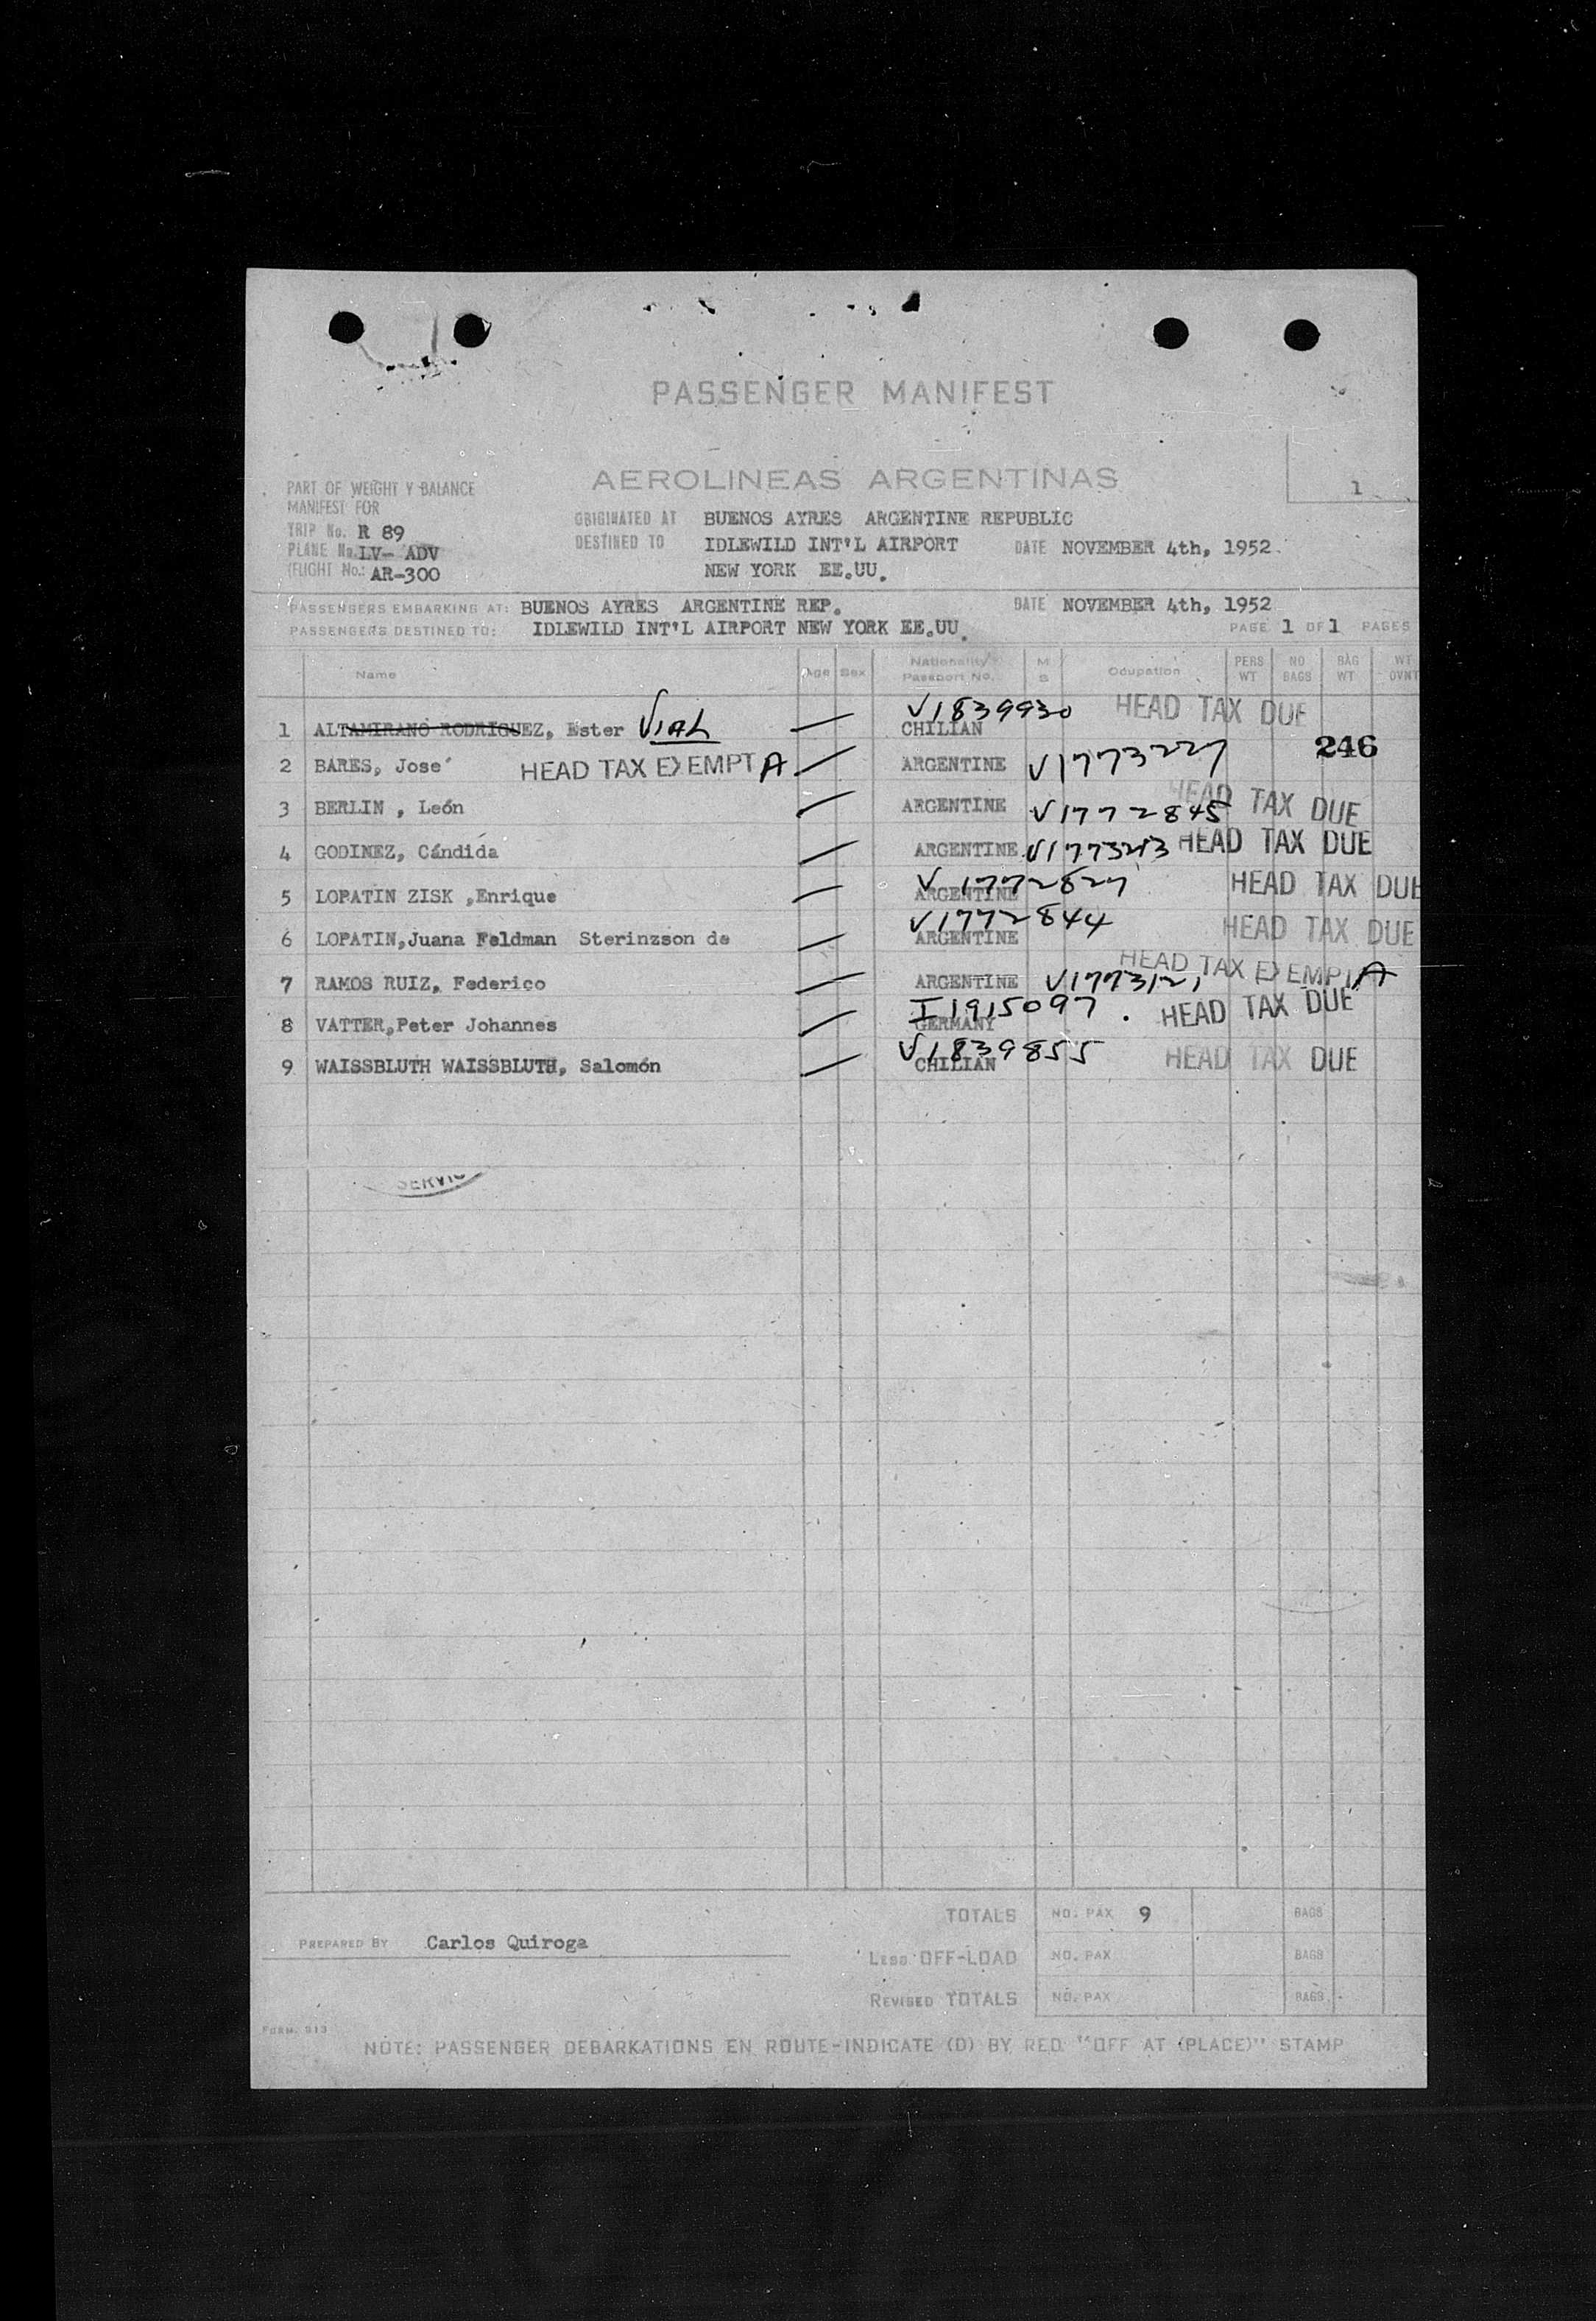 PASSENGER MANIFEST
AEROLINEAS ARGENTINAS
1
PART OF WEIGHT Y BALANCE
MANIFEST FOR
TRIP No. R 89
PLANE No. LV- ADV
FLIGHT No.: AR-300
ORIGINATED AT BUENOS AYRES ARGENTINE REPUBLIC
DESTINED TO IDLEWILD INT'L AIRPORT DATE NOVEMBER 4th, 1952.
NEW YORK EE.UU.
PASSENGERS EMBARKING AT: BUENOS AYRES ARGENTINE REP. DATE NOVEMBER 4th, 1952
PASSENGERS DESTINED TO: IDLEWILD INT'L AIRPORT NEW YORK EE.UU. PAGE 1 OF 1 PAGES
Name Age Sex Nationality Passport No. M S Ocupation PERS WT NO BAGS BAG WT WT OVNT
1 ALTAMIRANO RODRIGUEZ, Ester VIAL V1839930 CHILIAN HEAD TAX DUE
246
2 BARES, Jose' HEAD TAX EXEMPT A ARGENTINE V1773227
3 BERLIN , León ARGENTINE V1772845 HEAD TAX DUE
4 GODINEZ, Cándida ARGENTINE HEAD TAX DUE
5 LOPATIN ZISK ,Enrique V1772827 ARGENTINE HEAD TAX DUE
6 LOPATIN,Juana Feldman Sterinzson de V1772844 ARGENTINE HEAD TAX DUE
7 RAMOS RUIZ, Federico ARGENTINE V1773121 HEAD TAX EXEMPT A
8 VATTER,Peter Johannes I1915097 GERMANY HEAD TAX DUE
9 WAISSBLUTH WAISSBLUTH, Salomón V1839855 CHILIAN HEAD TAX DUE
TOTALS NO. PAX 9 BAGS
PREPARED BY Carlos Quiroga
LESS OFF-LOAD NO. PAX BAGS
REVISED TOTALS NO. PAX BAGS
FORM. 313
NOTE: PASSENGER DEBARKATIONS EN ROUTE-INDICATE (D) BY RED "OFF AT (PLACE)" STAMP